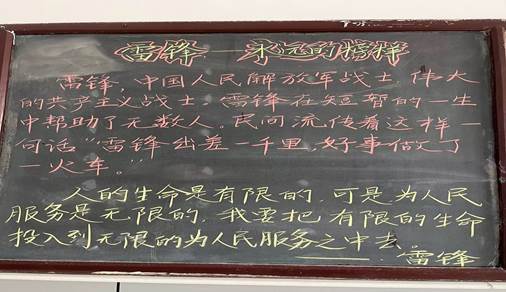 雷锋——永远的榜样
雷锋,中国人民解放军战士,伟大
的共产主义战士,雷锋在短暂的一生
中帮助了无数人。民间流传着这样一
句话“雷锋出差一千里,好事做了
一火车。”
人的生命是有限的,可是为人民
服务是无限的,我要把有限的生命
投入到无限的为人民服务之中去。
——雷锋